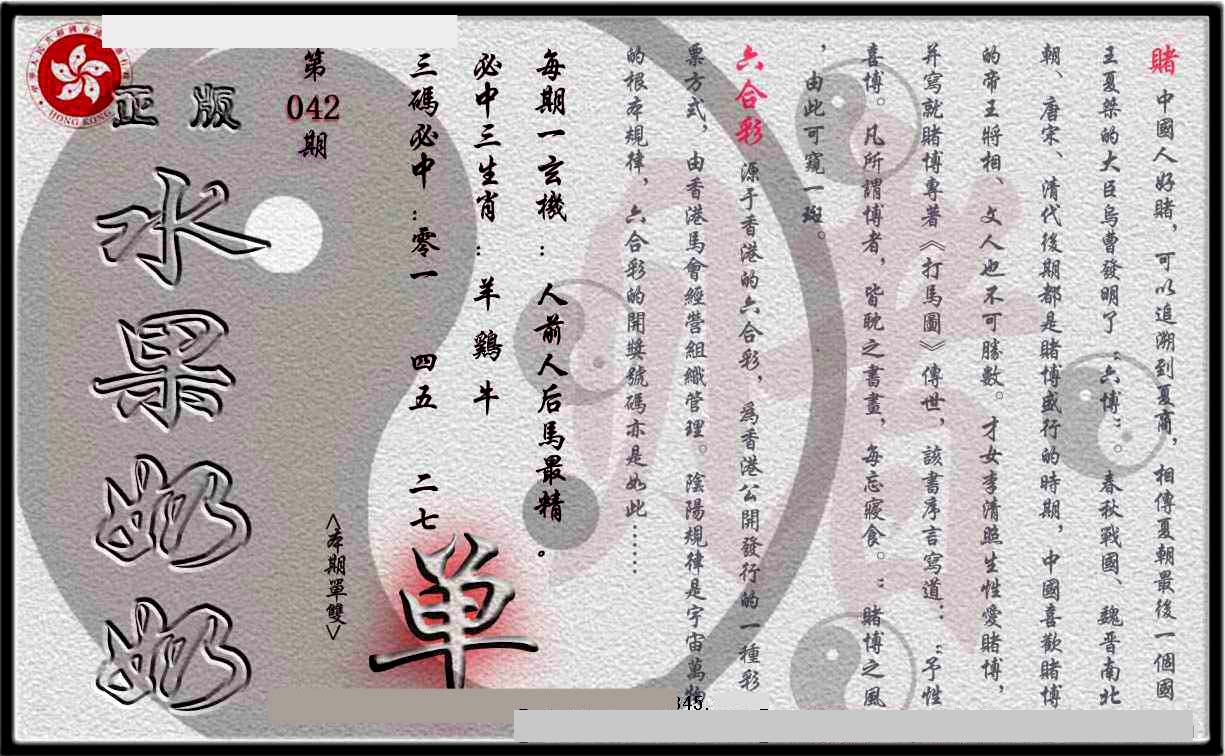 賭 中國人好賭，可以追溯到夏商，相傳夏朝最後一個國
王夏桀的大臣烏曹發明了“六博”。春秋戰國、魏晋南北
朝、唐宋、清代後期都是賭博盛行的時期，中國喜歡賭博
的帝王將相、文人也不可勝數。才女李清照生性愛賭博，
并寫就賭博專著《打馬圖》傳世，該書序言寫道：“予性
喜博。凡所謂博者，皆耽之書畫，每忘寢食。：賭博之風
，由此可窺一斑。
六合彩 源于香港的六合彩，為香港公開發行的一種彩
票方式，由香港馬會經營組織管理。陰陽規律是宇宙萬物
的根本規律，六合彩的開獎號碼亦是如此……
每期一玄機：人前人后馬最精。
必中三生肖：羊 鷄 牛
三碼必中：零一 四五 二七
单
<本期單雙>
第
042
期
正版
水果奶奶
HONG KONG
345.